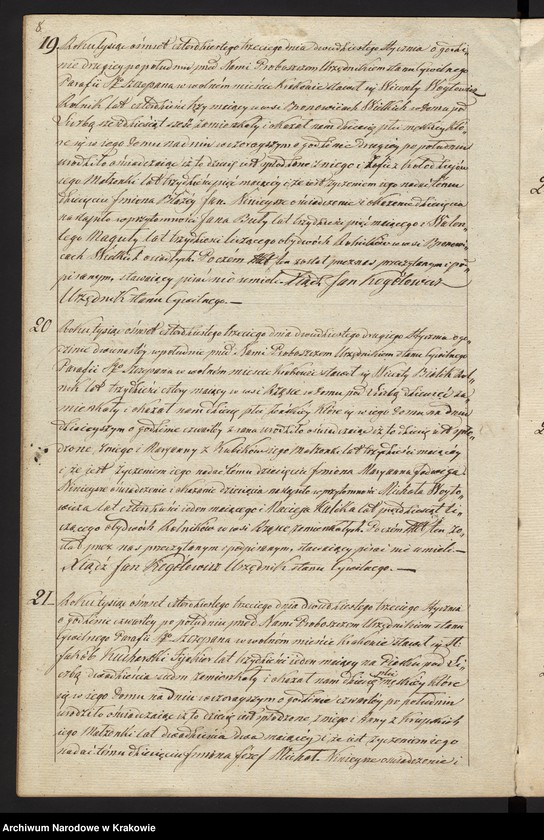 8.
19 Roku tysiąc ośmset czterdziestego trzeciego dnia dwudziestego Stycznia o godzi-
nie drugiey popołudniu przed Nami Proboszczem Urzędnikiem stanu Cywilnego
Parafii Sgo Szczepana w wolnem mieście Krakowie stawił się Wicenty Woytowicz
Rolnik lat czterdzieści trzy maiący w wsi Bronowicach Wielkich w domu pod
Liczbą sześćdziesiąt sześć zamieszkały i okazał nam dziecię płci męskiey któ-
re się w iego domu na dniu wczorayszym o godzinie drugiey popołudniu
urodziło oświadczaiąc iż to dziecię iest spłodzone z niego i Zofii z
iego Małżonki lat trzydzieści pięć maiącey i że iest życzeniem iego nadać temu
dziecięciu Imiona Błażey Jan. Ninieysze oświadczenie i okazanie dziecięcia
nastąpiło w przytomności Jana Buły lat trzydzieści pięć maiącego i Walen-
tego Maguły lat trzydzieści liczącego obydwóch Rolników w wsi Bronowi-
cach Wielkich osiadłych. Poczem Akt ten został przez nas przeczytanym i pod-
pisanym, stawaiący pisać nie umieli. Xiądz Jan Kegélowicz
Urzędnik stanu Cywilnego. —
20 Roku tysiąc ośmset czterdziestego trzeciego dnia dwudziestego drugiego Stycznia o go-
dzinie dwunastey w południe przed Nami Proboszczem Urzędnikiem stanu Cywilnego
Parafii Sgo Szczepana w wolnem mieście Krakowie stawił się Wicenty Białik Rol-
nik lat trzydzieści cztery maiący w wsi Rząsce w domu pod Liczbą dziewięć za-
mieszkały i okazał nam dziecię płci żeńskiey które się w iego domu na dniu
dzisieyszym o godzinie czwartey z rana urodziło oświadczaiąc iż to dziecię iest spło-
dzone z niego i Maryanny z Kubików iego Małżonki lat trzydzieści maiącey
i że iest życzeniem iego nadać temu dziecięciu Imiona Maryanna Jadwiga.
Ninieysze oświadczenie i okazanie dziecięcia nastąpiło w przytomności Michała Woyto-
wicza lat czterdzieści ieden maiącego i Macieja Kulika lat pięćdziesiąt li-
czącego obydwóch Rolników w wsi Rząsce zamieszkałych. Poczem Akt ten zo-
stał przez nas przeczytanym i podpisanym, stawaiący pisać nie umieli. —
Xiądz Jan Kegélowicz Urzędnik stanu Cywilnego. —
21 Roku tysiąc ośmset czterdziestego trzeciego dnia dwudziestego trzeciego Stycznia
o godzinie czwartey po południu przed Nami Proboszczem Urzędnikiem stanu
Cywilnego Parafii Sgo Szczepana w wolnem mieście Krakowie stawił się St.
Jakób Kucharski Fijakier lat trzydzieści ieden maiący na Piasku pod Li-
czbą dwadzieścia siedm zamieszkały i okazał nam dziecię płci męskiey które
się w iego domu na dniu wczorayszym o godzinie czwartey po południu
urodziło oświadczaiąc iż to dziecię iest spłodzone z niego i Anny z Krupskich
iego Małżonki lat dwadzieścia dwa maiącey i że iest życzeniem iego
nadać temu dziecięciu Imiona Józef Michał. Ninieysze oświadczenie i
Archiwum Narodowe w Krakowie